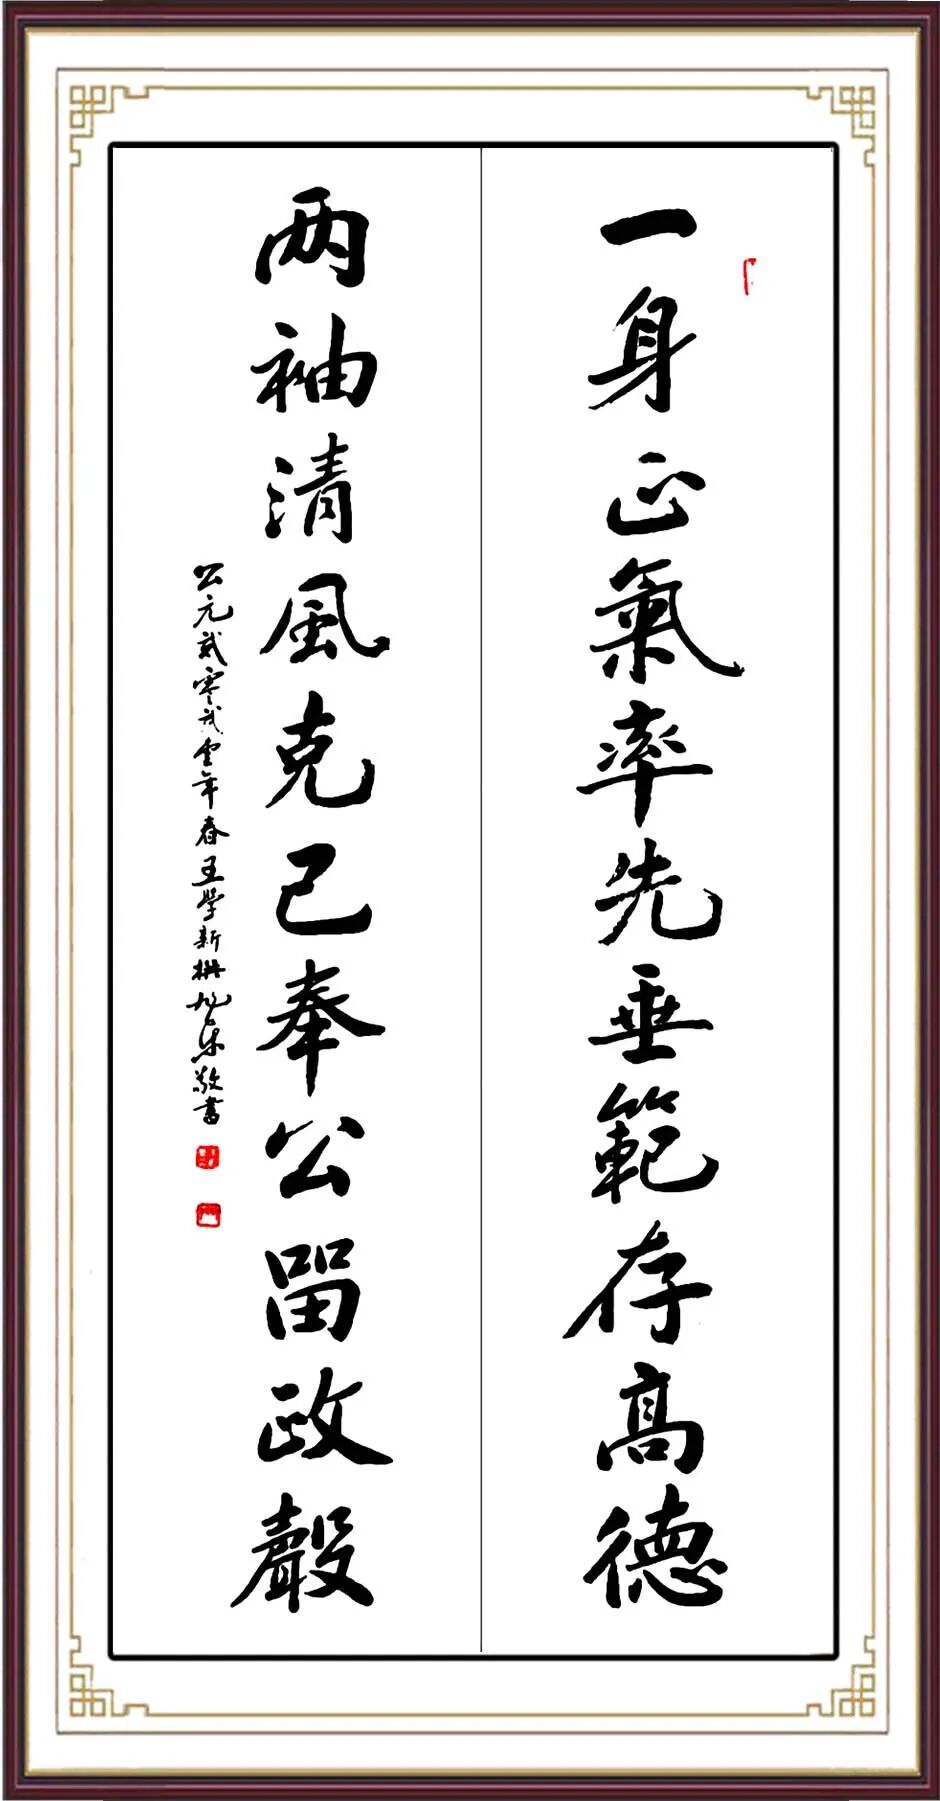 一身正氣率先垂範存高德
两袖清風克己奉公留政聲
公元贰零贰壹年春王學新撰旭东敬書